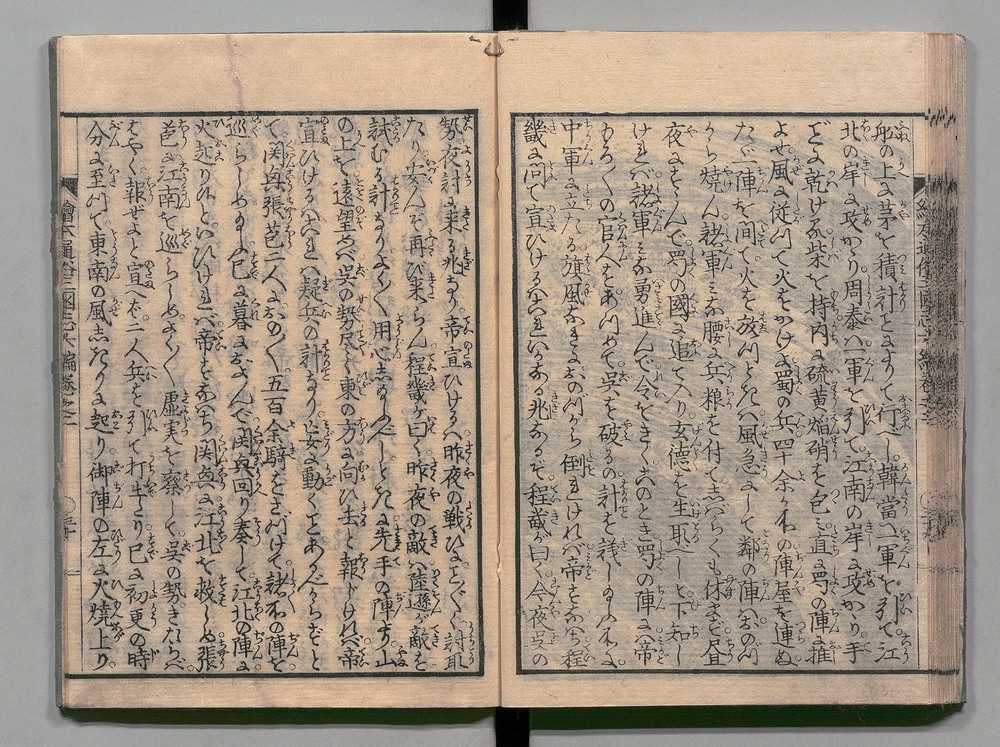 舩の上に茅を積計とよりて行べし韓當ハ一軍を引て江
北の岸に攻かゝり周泰ハ一軍を引て江南の岸に攻かゝり手
どに乾ける柴を持内に硫黄焔硝を包ミ直に蜀の陣に推
よせ風に從つて火をかけよ蜀の兵四十余ケ所の陣屋を連ぬ
たゞ一陣を間て火を放つときハ風急にして鄰の陣おのづ
から燒ん諸軍ミな腰に兵粮を付てしバらくも休まず昼
夜にすゝんで蜀の國に追て入り玄德を生取べしと下知し
けれバ諸軍ミな勇進んで令をきく此のとき蜀の陣にハ帝
もろ〱の官人をあつめて呉を破るの計を議しゐ給ふに
中軍に立たる旗風なきにおのづから倒れけれバ帝すなハち程
畿に問て宣ひけるハこれハいかなる兆なるぞ程畿が曰く今夜呉の
勢夜討に來る兆なり帝宣ひけるハ昨夜の戰ひにこと〲く討取
たり安んぞ再び来らん程畿が曰く昨夜の敵ハ陸遜が敵を
試むる計なりよく〱用心し給ふべしとときに先手の陣より山
の上を遠望めバ呉の勢尽く東の方に向ひ去と報じけれバ帝
宣ひけるハこれハ疑兵の計なり妄に動くことあるべからずと
て関興張苞二人におの〱五百余騎をさづけて諸所の陣を
巡らしめ給ふ已に暮におよんで関興回り奏して江北の陣に
火起り候といひけれバ帝すなハち関興に江北を救しめ張
苞に江南を巡らしめよく〱虚実を察して呉の勢きたらバ
はやく報ぜよと宣へバ二人兵を引て打立たり已に初更の時
分に至つて東南の風しきりに起り御陣の左に火燒上り
繪本通俗三國志六編卷之二